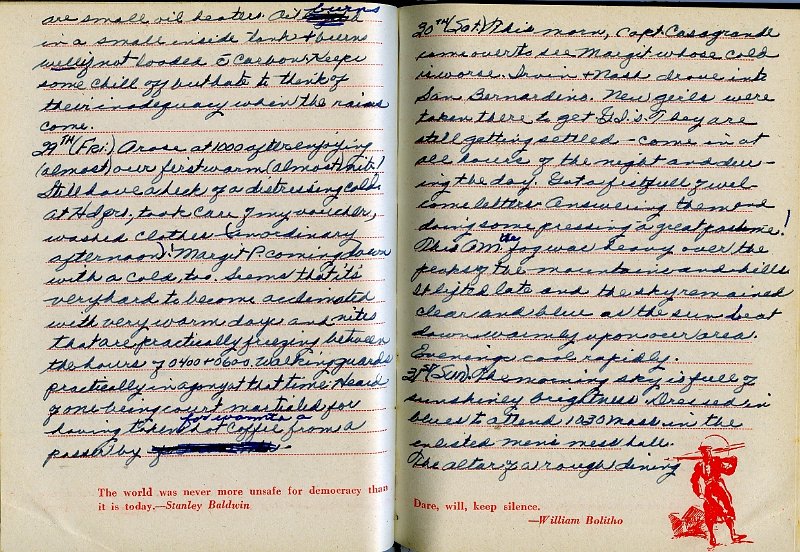 are small oil heaters. Oil burns
in a small inside tank & burns
well if not loaded c̄ carbon. Keeps
some chill off but hate to think of
their inadequacy when the rains
come.
29TH (Fri.) Arose at 1000 after enjoying
(almost) our first warm (almost) nite!
Still have a heck of a distressing cold.
At Hdqrs. took care of my voucher,
washed clothes (an ordinary
afternoon)! Margit P. coming down
with a cold, too. Seems that it's
very hard to become acclimated
with very warm days and nites
that are practically freezing between
the hours of 0400 & 0600. Walking guards
practically in agony at that time. Heard
of one being court martialed for
having taken hot coffee from a
for warmth
passer by
The world was never more unsafe for democracy than
it is today.—Stanley Baldwin
30TH (Sat.) This morn, Capt. Casagrande
came over to see Margit whose cold
is worse. Irvin & Nash drove into
San Bernardino. New girls were
taken there to get G.I.'s. They are
still getting settled - come in at
all hours of the night and dur-
ing the day. Got a fistfull of wel-
come letters. Answering them and
doing some pressing a great pastime!
This AM the fog was heavy over the
peaks of the mountains and hills.
It lifted late and the sky remained
clear and blue as the sun beat
down warmly upon our area.
Evenings cool rapidly.
31st (Sun.) The morning sky is full of
sunshiney brightness. Dressed in
blues to attend 1030 Mass in the
enlisted men's mess hall.
The altar of a rough dining
Dare, will, keep silence.
—William Bolitho